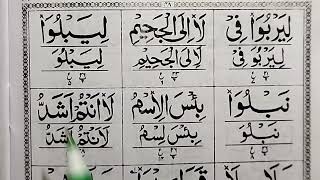 لِيَرْبُوَا۟ فِىْ لَا۟اِلَى الْجَحِيْمِ لِيَبْلُوَا۟
لِيَرْبُوَ فِىْ لَاِلَى الْجَحِيْمِ لِيَبْلُوَ
نَبْلُوَا۟ بِئْسَ الْاِسْمُ لَا۟اَنْتُمْ اَشَدُّ
نَبْلُوَ بِئْسَ لِسْمُ لَاَنْتُمْ اَشَدُّ